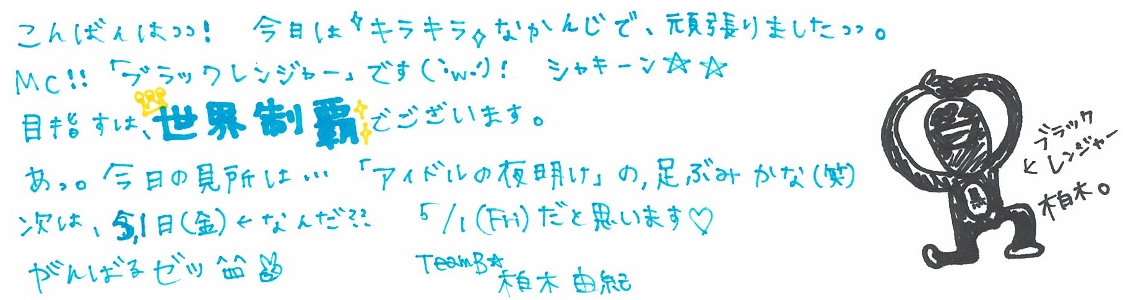 こんばんはっっ! 今日は キラキラ なかんじで、頑張りましたっっ。
MC!!「ブラックレンジャー」です(`・w・´)! シャキーン☆☆
目指すは、世界制覇でございます。
あっ。今日の見所は…「アイドルの夜明け」の、足ぶみかな(笑)
次は、5,1日(金)←なんだ?? 5/1(Fri)だと思います♡
がんばるゼッ
TeamB☆
柏木由紀
ブラック
←レンジャー
柏木。
黒